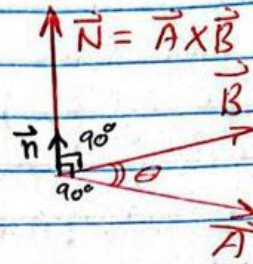 N⃗ = A⃗ X B⃗
B⃗
n⃗ 90°
90° θ
A⃗